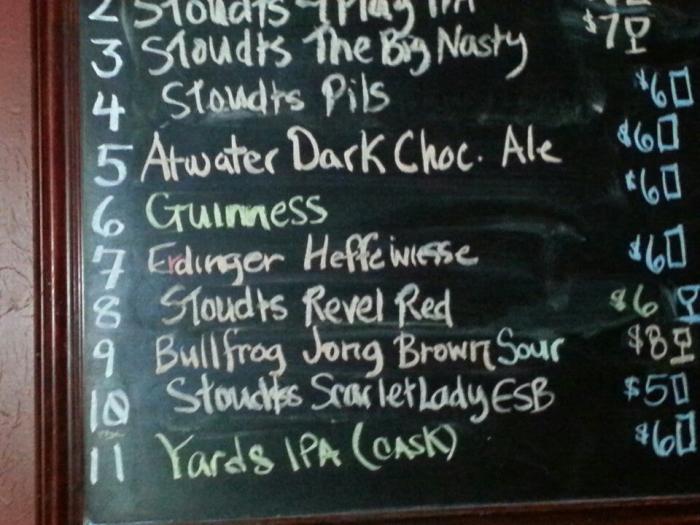 2 Stoudts 4 Play IPA
3 Stoudts The Big Nasty $7
4 Stoudts Pils $6
5 Atwater Dark Choc. Ale $6
6 Guinness $6
7 Erdinger Heffeiwiesse $6
8 Stoudts Revel Red $6
9 Bullfrog Jong Brown Sour $8
10 Stoudtts Scarlet Lady ESB $5
11 Yards IPA (CASK) $6